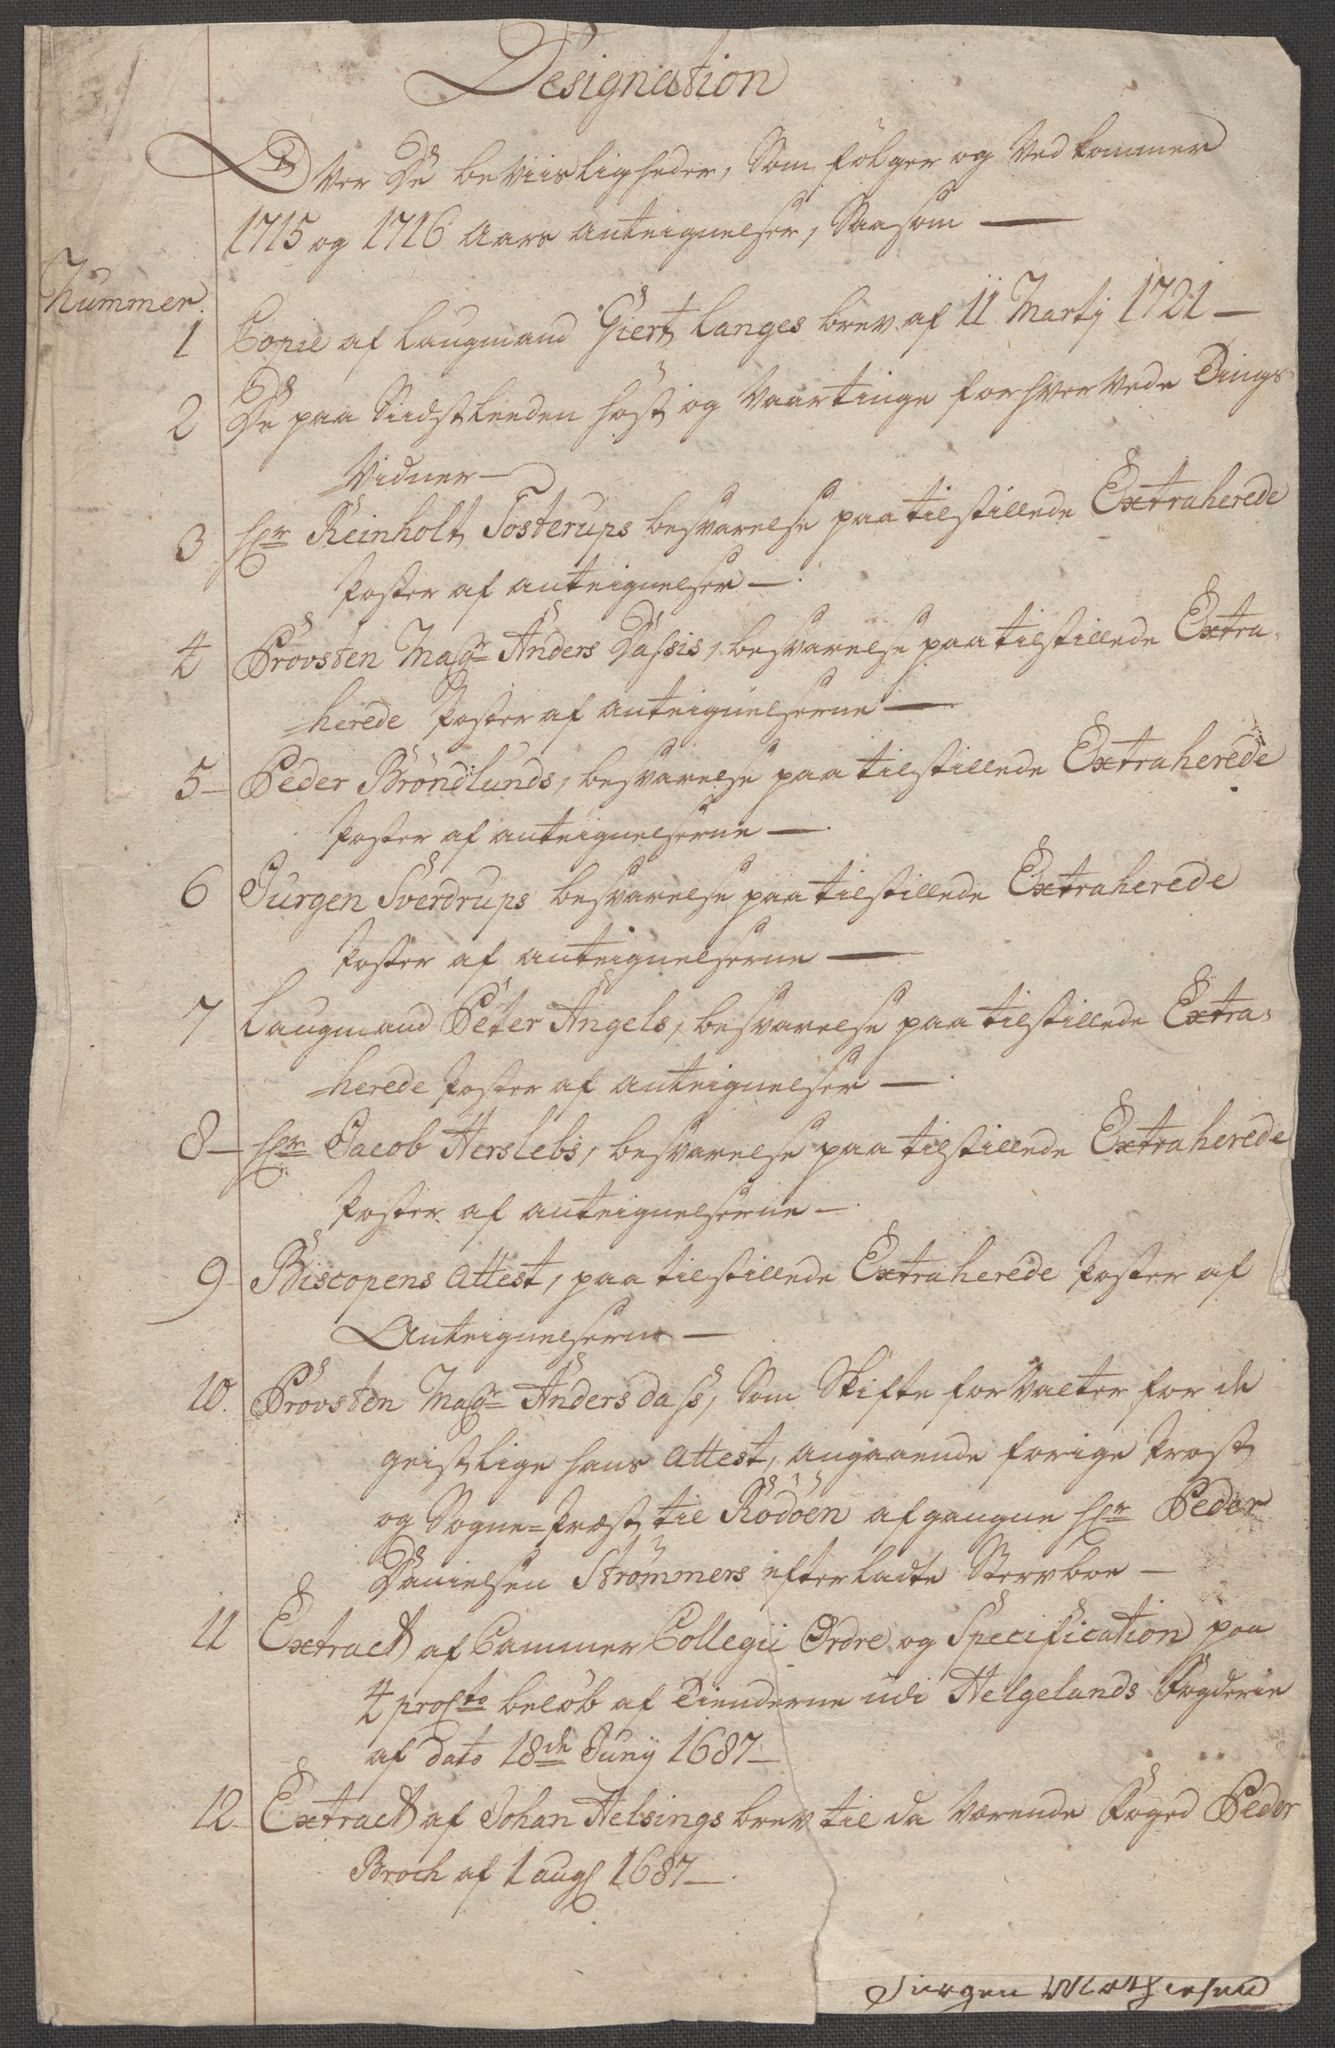 Designation
Over De beviisligheder, Som følger og Vedkommer
1715 og 1716 Aars anteignelser, Saasom —
Nummer.
1 Copie af Laugmand Giert Langes brev af 11 Martj 1721 —
2 De paa Siidstleeden høst og Vaartinge forhvervede Tings
Vidner —
3 hr Reinholt Tosterups besvarelse paa tilstillede Extraherede
Poster af anteignelser —
4 Provsten Magr Anders Dassis, besvarelse paa tilstillede Extra-
herede Poster af anteignelserne —
5 — Peder Brøndlunds, besvarelse paa tilstillede Extraherede
Poster af anteignelserne —
6 Jurgen Sverdrups besvarelse paa tilstillede Extraherede
Poster af anteignelserne —
7 Laugmand Peter Angels, besvarelse paa tilstillede Extra-
herede Poster af anteignelser —
8 — hr Jacob Herslebs, besvarelse paa tilstillede Extraherede
Poster af anteignelserne —
9 Biscopens Attest, paa tilstillede Extraherede Poster af
Anteignelserne —
10. Provsten Magr Anders dass, Som Skifte forvalter for de
geistlige hans Attest, angaaende forige Prost
og Sogne=Præst til Rödöen afgangne hr Peder
Danielsen Strømmers efterladte Stervboe —
11 Extract af Cammer Collegii Ordre og Specification paa
4 proCto beløb af Tienderne udi Helgelands Fogderie
af dato 18de Junij 1687 —
12 Extract af Johan Helsings brev til da værende Foged Peder
Broch af 1 aug 1687 —
Jurgen Mathiesen